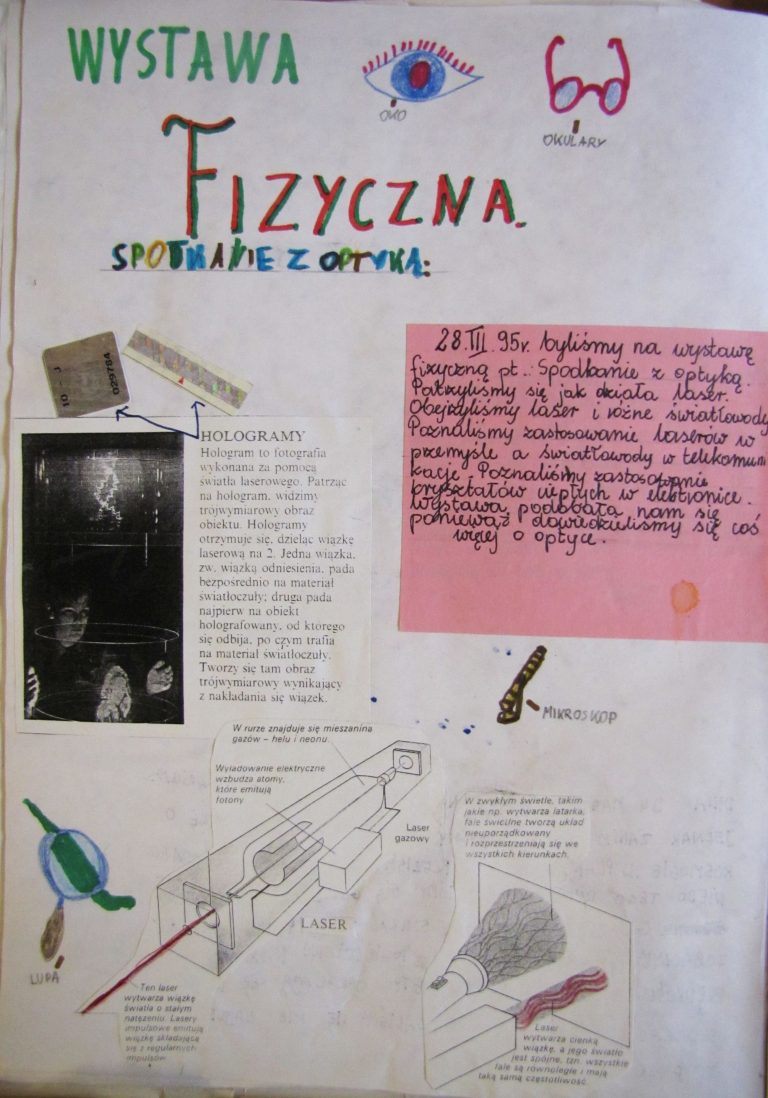 WYSTAWA
OKO
OKULARY
FIZYCZNA.
SPOTKANIE Z OPTYKĄ:
10 - J
029784
28.III.95r. byliśmy na wystawę
fizyczną pt.: Spodkanie z optyką.
Patrzyliśmy się jak działa laser.
Obejrzyliśmy laser i różne światłowody
Poznaliśmy zastosowanie laserów w
przemyśle a światłowody w telekomuni
kacje. Poznaliśmy zastosowanie
kryształów ciepłych w elektronice.
Wystawa podobała nam się
ponieważ dowiedzieliśmy się coś
więcej o optyce.
HOLOGRAMY
Hologram to fotografia
wykonana za pomocą
światła laserowego. Patrząc
na hologram, widzimy
trójwymiarowy obraz
obiektu. Hologramy
otrzymuje się, dzieląc wiązkę
laserową na 2. Jedna wiązka,
zw. wiązką odniesienia, pada
bezpośrednio na materiał
światłoczuły; druga pada
najpierw na obiekt
holografowany, od którego
się odbija, po czym trafia
na materiał światłoczuły.
Tworzy się tam obraz
trójwymiarowy wynikający
z nakładania się wiązek.
MIKROSKOP
W rurze znajduje się mieszanina
gazów – helu i neonu.
Wyładowanie elektryczne
wzbudza atomy,
które emitują
fotony
Laser
gazowy
LASER
LUPA
Ten laser
wytwarza wiązkę
światła o stałym
natężeniu. Lasery
impulsowe emitują
wiązkę składającą
się z regularnych
impulsów.
W zwykłym świetle, takim
jakie np. wytwarza latarka,
fale świetlne tworzą układ
nieuporządkowany
i rozprzestrzeniają się we
wszystkich kierunkach.
Laser
wytwarza cienką
wiązkę, a jego światło
jest spójne, tzn. wszystkie
fale są równoległe i mają
taką samą częstotliwość.